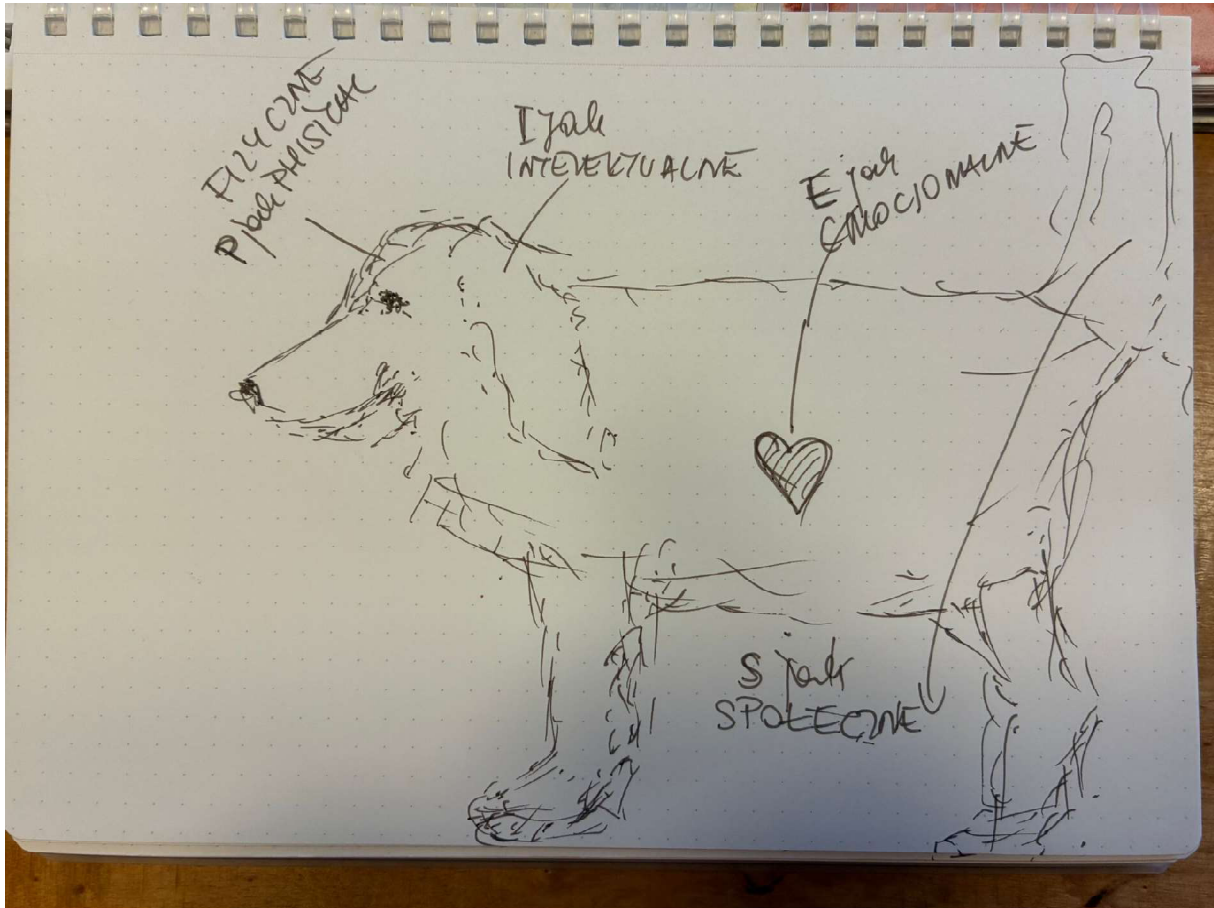 FIZYCZNE
P jak PHISICAL
I jak
INTELEKTUALNE
E jak
EMOCJONALNE
S jak
SPOŁECZNE